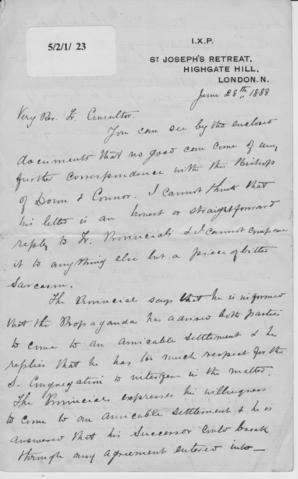 5/2/1/ 23
I.X.P.
ST JOSEPH'S RETREAT,
HIGHGATE HILL,
LONDON. N.
June 28th 1888
Very Rev. Fr. Consultor.
You can see by the enclosed
documents that no good can come of any
further correspondence with the Bishop
of Down & Connor. I cannot think that
his letter is an honest or straightforward
reply to Fr. Provincial's & I cannot compare
it to anything else but a piece of bitter
sarcasm.
The Provincial says that he is informed
that the Propaganda has advised both parties
to come to an amicable settlement & he
replies that he has too much respect for the
S. Congregation to interfere in the matter.
The Provincial expresses his willingness
to come to an amicable settlement & he is
answered that his successor could break
through any agreement entered into—